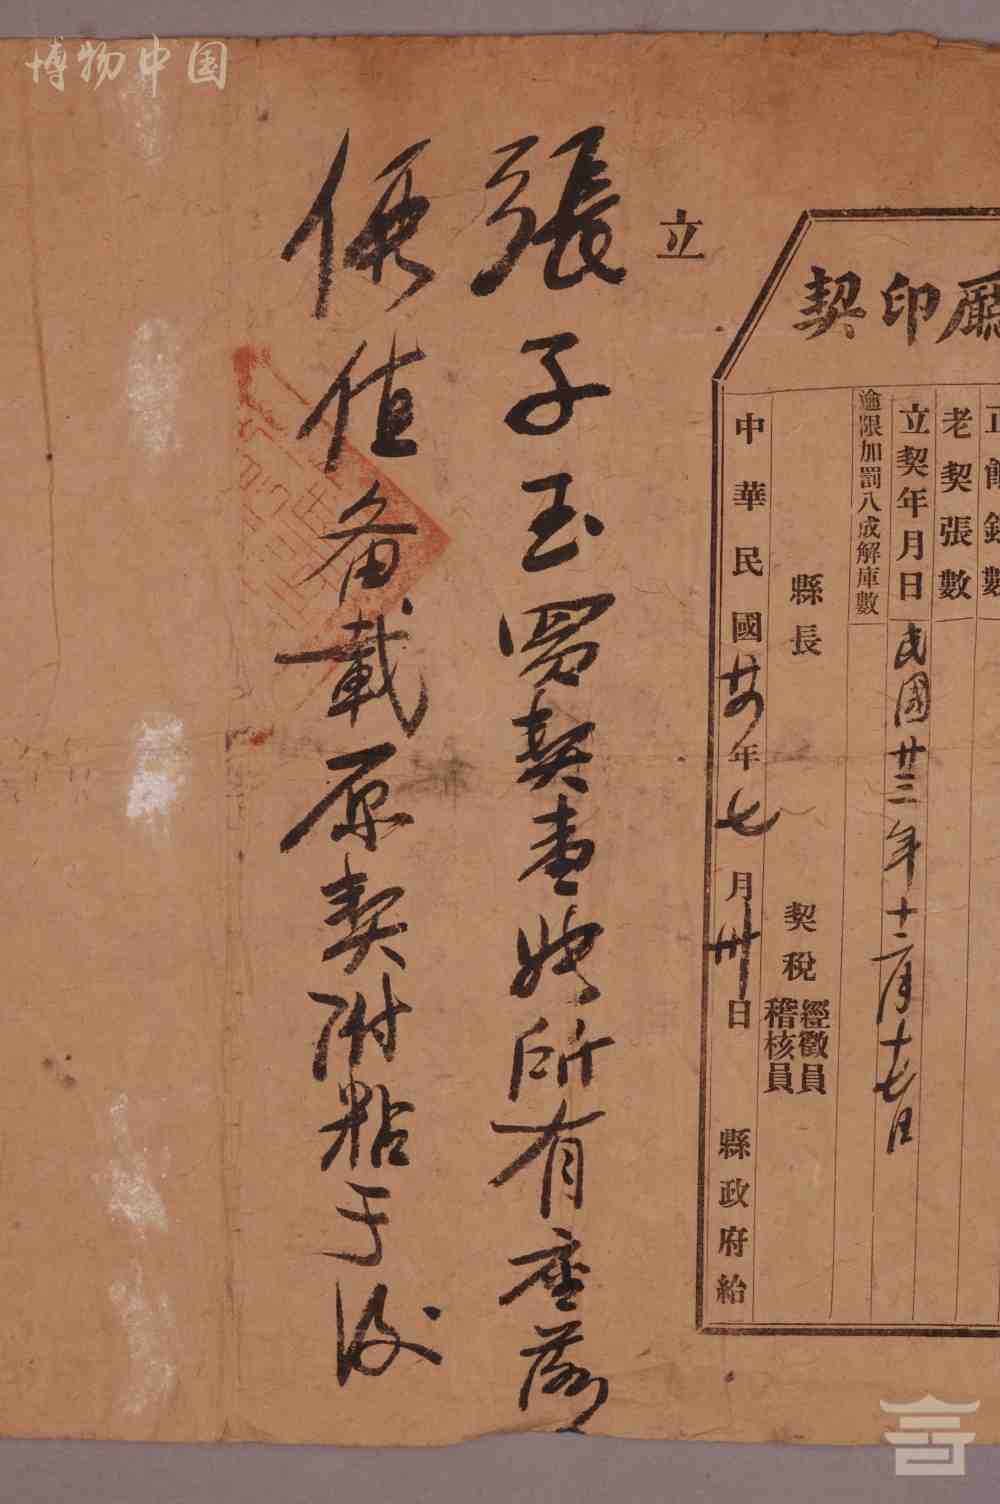 博物中国
廳印契
老契張數
立契年月日 民國廿三年十二月十七日
逾限加罰八成解庫數
縣長 契稅 經徵員 稽核員
中華民國廿四年七月卅日 縣政府給
立
張子玉買契壹張所有座落
価值备載原契附粘于後